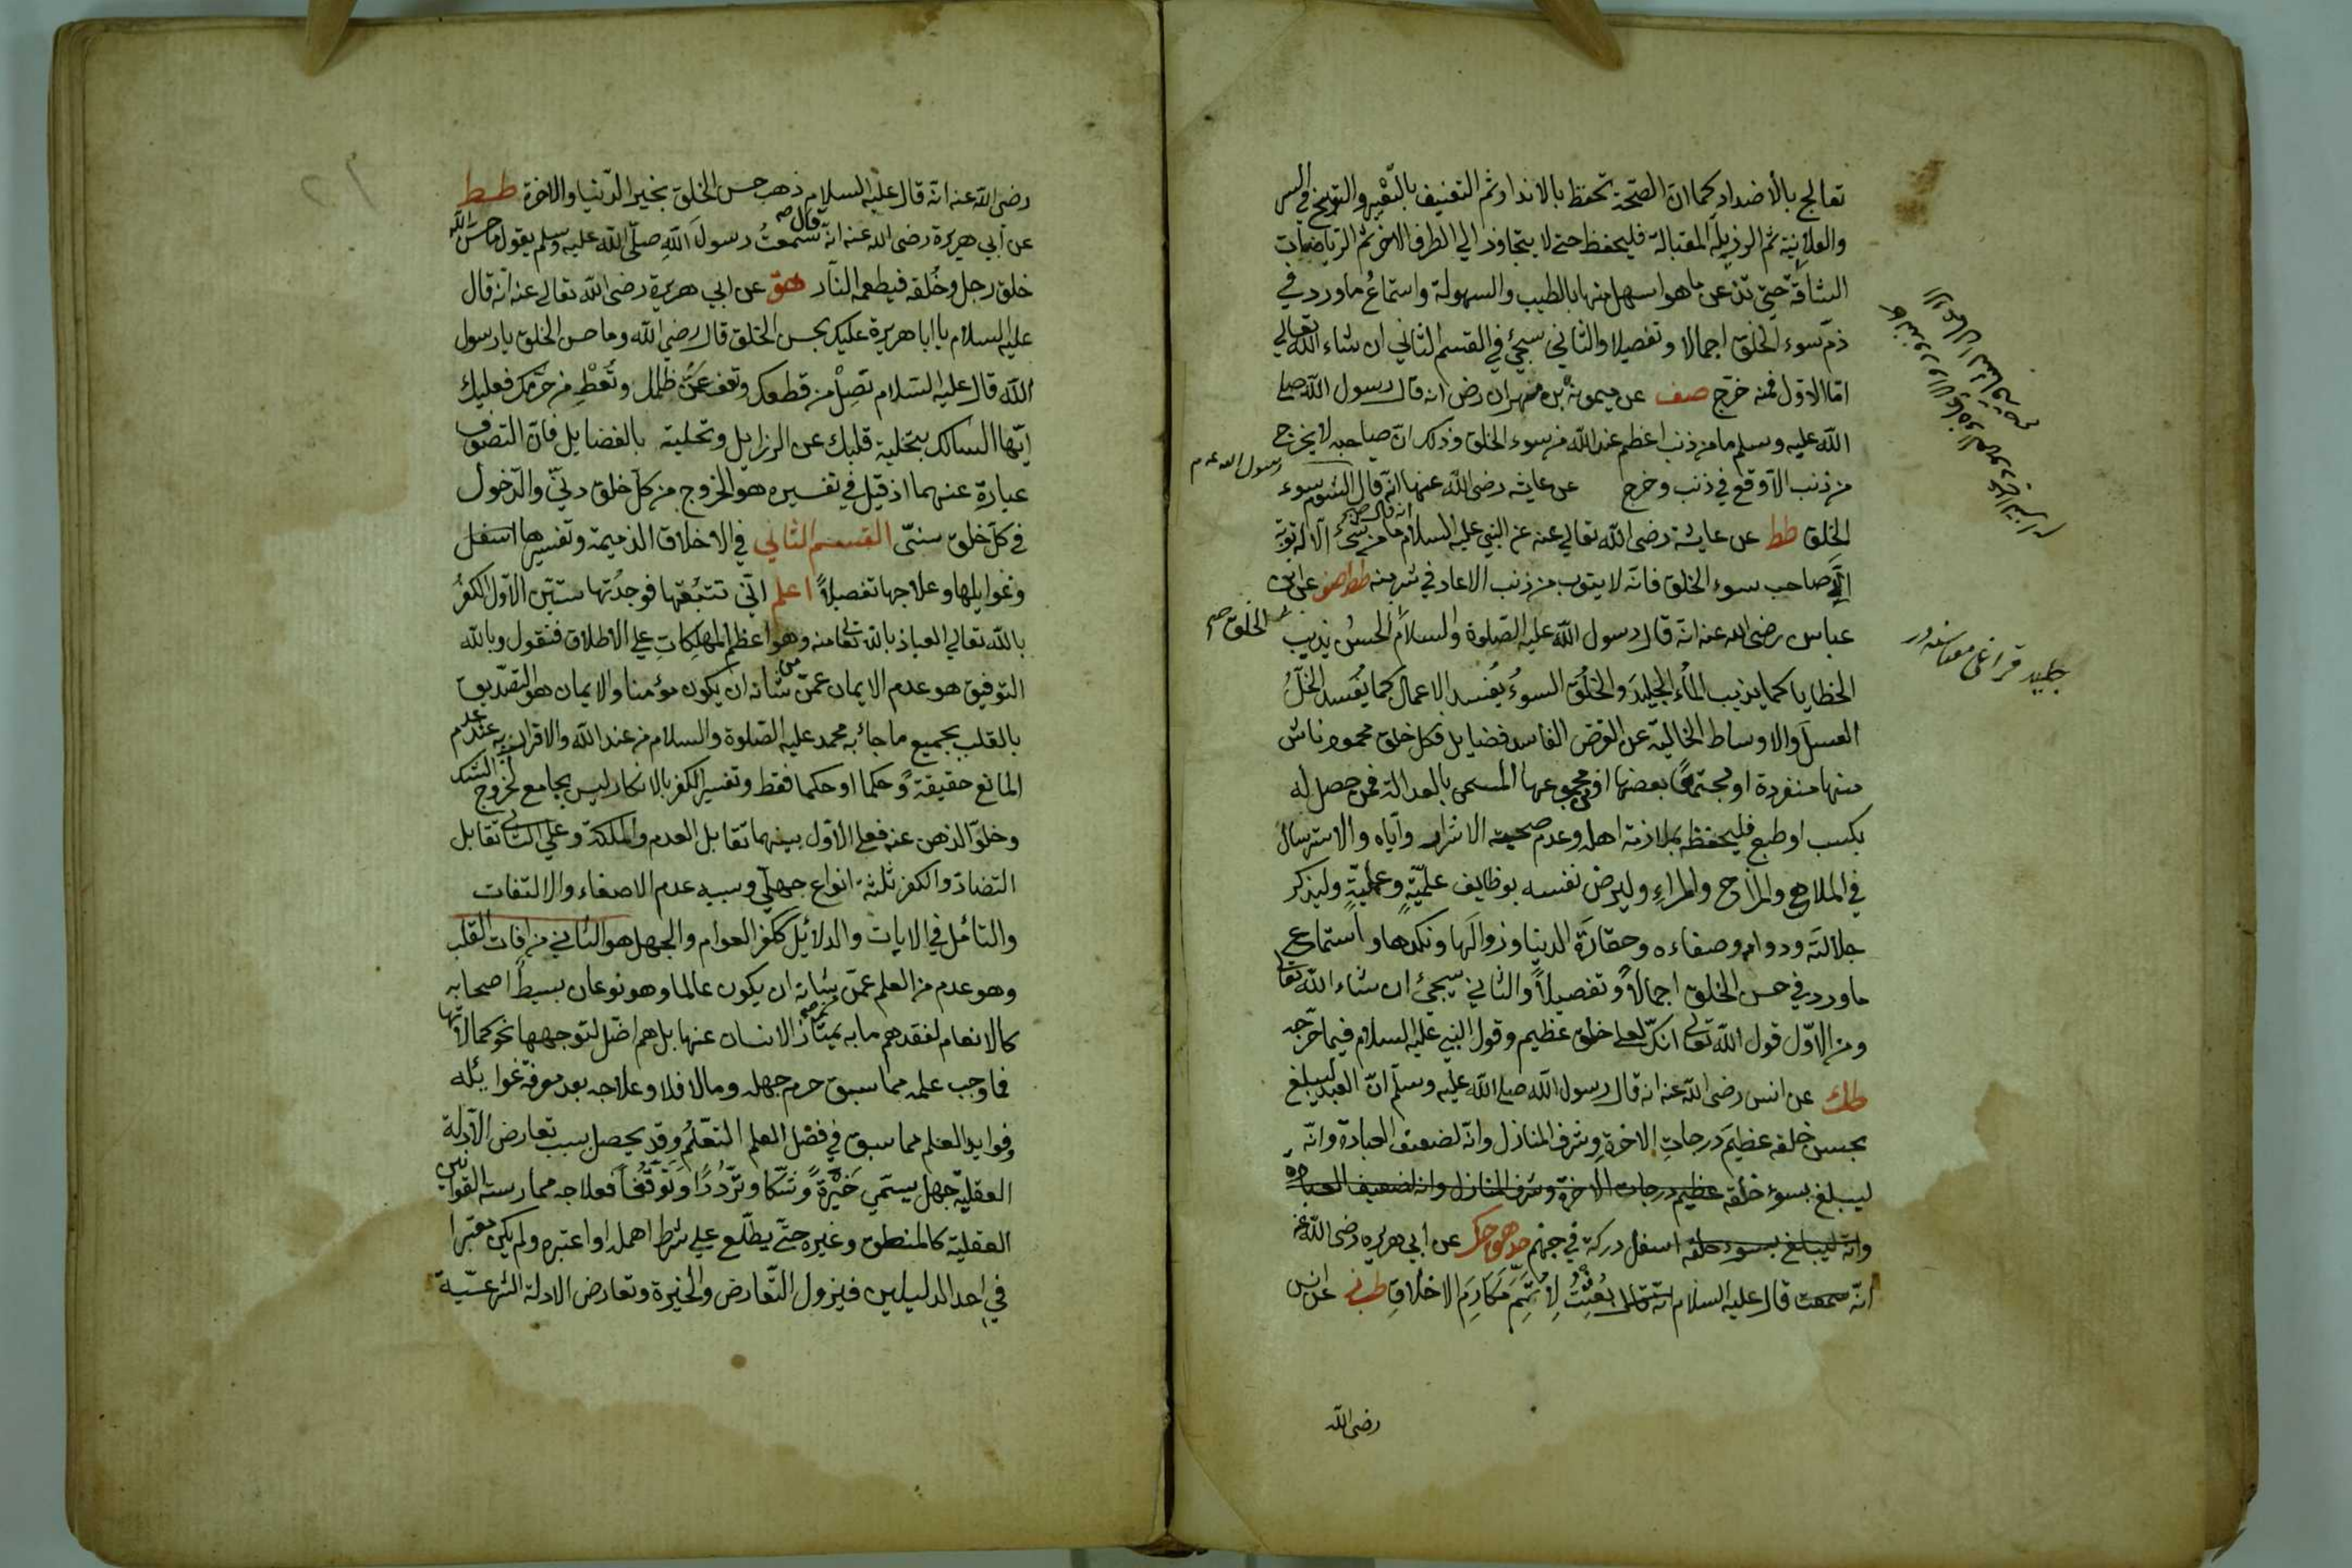 تعالج بالأضداد كما ان الصّحة تحفظ بالانداد ثم التعنيف بالتّعيير والتوبيخ في السر
والعلانية ثم الرذيلة المقابلة فليحفظ حتى لا يتجاوز الى الطرف الاخر ثم الرياضات
الشاقة حتى تذعن ما هو اسهل منها بالطيب والسهولة واستماع ما ورد في
ذم سوء الخلق اجمالا وتفصيلا والثاني سيجئ في القسم الثاني ان شاء الله تعالى
اما الاول فمنه خرّج صف عن ميمونة بن مهران رض انه قال رسول الله صلى
الله عليه وسلم ما من ذنب اعظم عند الله من سوء الخلق وذلك ان صاحبه لا يخرج
من ذنب الّا وقع في ذنب وخرج عن عايشه رضى الله عنها انه قال الشوم سوء
رسول الله عم
الخلق طط عن عايشة رضى الله تعالى عنه عن النبي عليه السلام انه قال ما من شئ الّا له توبة
الّا صاحب سوء الخلق فانه لا يتوب من ذنب الا عاد في شر منه طط هق عن ابن
عباس رضى الله عنه انه قال رسول الله عليه الصلوة والسلام الخلق الحسن يذيب
الخطايا كما يذيب الماء الجليد والخلق السوء يُفسد الاعمال كما يُفسد الخلّ
العسل والاوساط الخالية عن الغرض الفاسد فضايل فكل خلق محمود ناش
منها منفردة او مجتمعا بعضها او مجموعها المسمى بالعدالة فمن حصل له
بكسب او طبع فليحفظه بملازمة اهله وعدم صحبة الاشرار وايّاه والاسترسال
في الملاهى والمزاح والمراءِ وليرض نفسه بوظايف علميّةٍ وعمليّةٍ وليذكر
جلالته ودوامه وصفاءه وحقارة الدنيا وزوالها ونكدها واستماع
ما ورد في حسن الخلق اجمالاً وتفصيلاً والثاني سيجئ ان شاء الله تعالى
ومن الاوّل قول الله تعالى انك لعلى خلق عظيم وقول النبي عليه السلام فيما خرّجه
طك عن انس رضى الله عنه انه قال رسول الله صلى الله عليه وسلم انّ العبد ليبلغ
بحسن خلقه عظيم درجات الاخرةِ وشرف المنازل وانه لضعيف العبادة وانّه
ليبلغ بسوء خلقه عظيم درجات الاخرة وشرف المنازل وانه لضعيف العبادة
وانّه ليبلغ بسوء خلقه اسفل دركة في جهنم حد هق حك عن ابي هريره رضى الله عنه
انّه سمعت قال عليه السلام انه قال بُعِثتُ لِأُتَمِّمَ مَكَارِمَ الاخلاقِ طب عن انس
رضى الله
جليد قراغى معناسنه در
رضى الله عنه انه قال عليه السلام ذهب حسن الخلق بخير الدّنيا والاخرة طط
عن أبي هريرة رضى الله عنه انه قال سمعتُ رسول الله صلّى الله عليه وسلم يقول ما حسّن الله
خلق رجل وخُلقه فيطعمه النار هق عن ابي هريرة رضى الله تعالى عنه انه قال
عليه السلام يا ابا هريرة عليك بحسن الخلق قال رضى الله وما حسن الخلق يا رسول
الله قال عليه السّلام تصِلُ من قطعك وتعف عمّن ظلمك وتُعْطِ من حرّمك فعليك
ايّها السالك بتخلية قلبك عن الرزايل وتحلية بالفضايل فان التصوف
عبارة عنهما اذ قيل في تفسيره هو الخروج من كل خلق دنيّ والدّخول
في كل خلق سنيّ القسم الثاني في الاخلاق الذميمة وتفسيرها
وغوايلها وعلاجها تفصيلاً اعلم انّي تتبّعتها فوجدتها ستين الاوّل الكفرُ
بالله تعالى العياذ بالله تعالى منه وهو اعظم المهلكاتِ على الاطلاق فنقول وبالله
التوفيق هو عدم الايمان عمّن من شانه ان يكون مؤمنا والايمان هو التصديق
بالقلب بجميع ما جاء به محمد عليه الصلوة والسلام من عند الله والاقرار به عند عدم
المانع حقيقةً وحكما او حكما فقط وتفسير الكفر بالانكار ليس بجامع لخروج الشك
وخلوّ الذهن عنه فعلى الاوّل بينهما تقابل العدم والملكة وعلى الثاني تقابل
التضادّ والكفر ثلثة انواع جهليّ وسببه عدم الاصغاء والالتفات
والتأمّل في الايات والدلائل ككفر العوام والجهل هو الثاني من افات القلب
وهو عدم من العلم عمّن شانه ان يكون عالما وهو نوعان بسيطٌ اصحابه
كالانعام لفقدهم ما به يمتاز الانسان عنها بل هم اضلّ لتوجهها نحو كمالاتها
فما وجب علمه مما سبق حرم جهله وما لا فلا وعلاجه بعد معرفة غوايله
وفوايد العلم مما سبق في فضل العلم التعلّمُ وقد يحصل بسبب تعارض الادلّة
العقليّة جهل يسمّى حَيْرَةً وشكا وتردّدًا وتوقّفاً فعلاجه ممارسته القوانين
العقليّة كالمنطق وغيره حتّى يطّلع على شرط اهمله او اعتبره ولم يكن معتبرا
في احد الدليلين فيزول التّعارض والحيرة وتعارض الادلة الشرعيّية